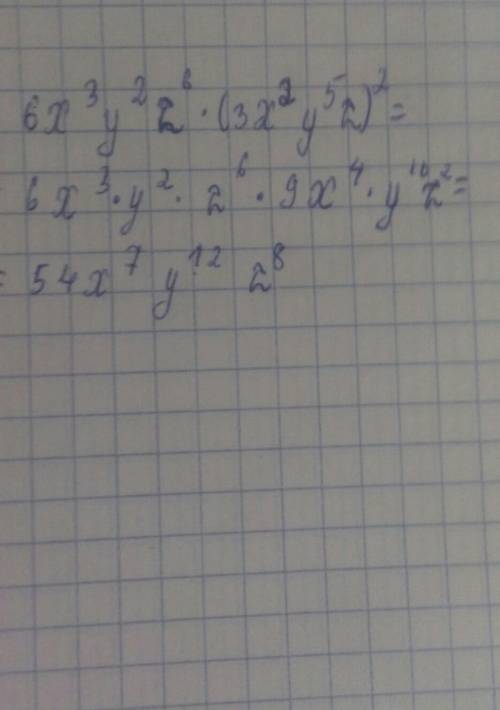 6x³y²z⁶·(3x²y⁵z)²=
6x³·y²·z⁶·9x⁴·y¹⁰z²=
=54x⁷y¹²z⁸